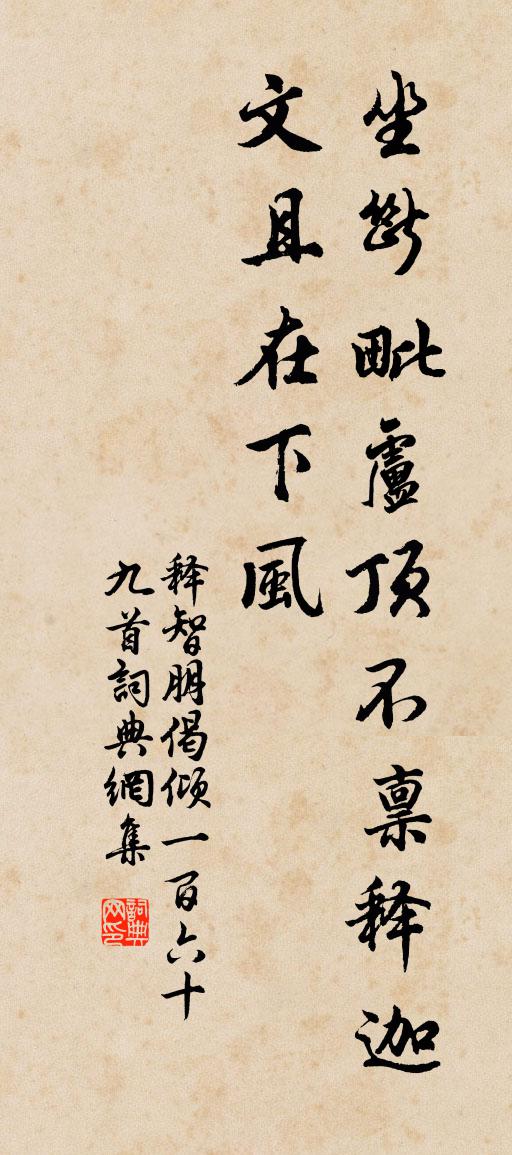 坐斷毗盧頂不禀释迦
文且在下風
释智朋偈傾一百六十
九首詞典網集
詞典网印